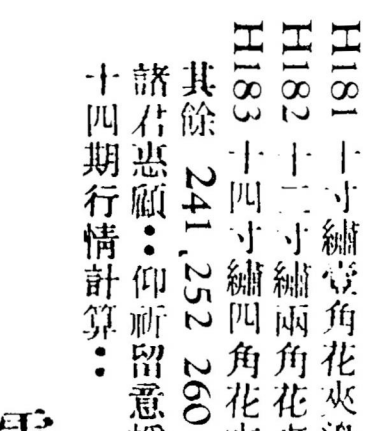 H181 十寸繡壹角花夾邊
H182 十二寸繡兩角花夾
H183 十四寸繡四角花夾
其餘 241,252 260
諸君惠顧：仰祈留意
十四期行情計算：